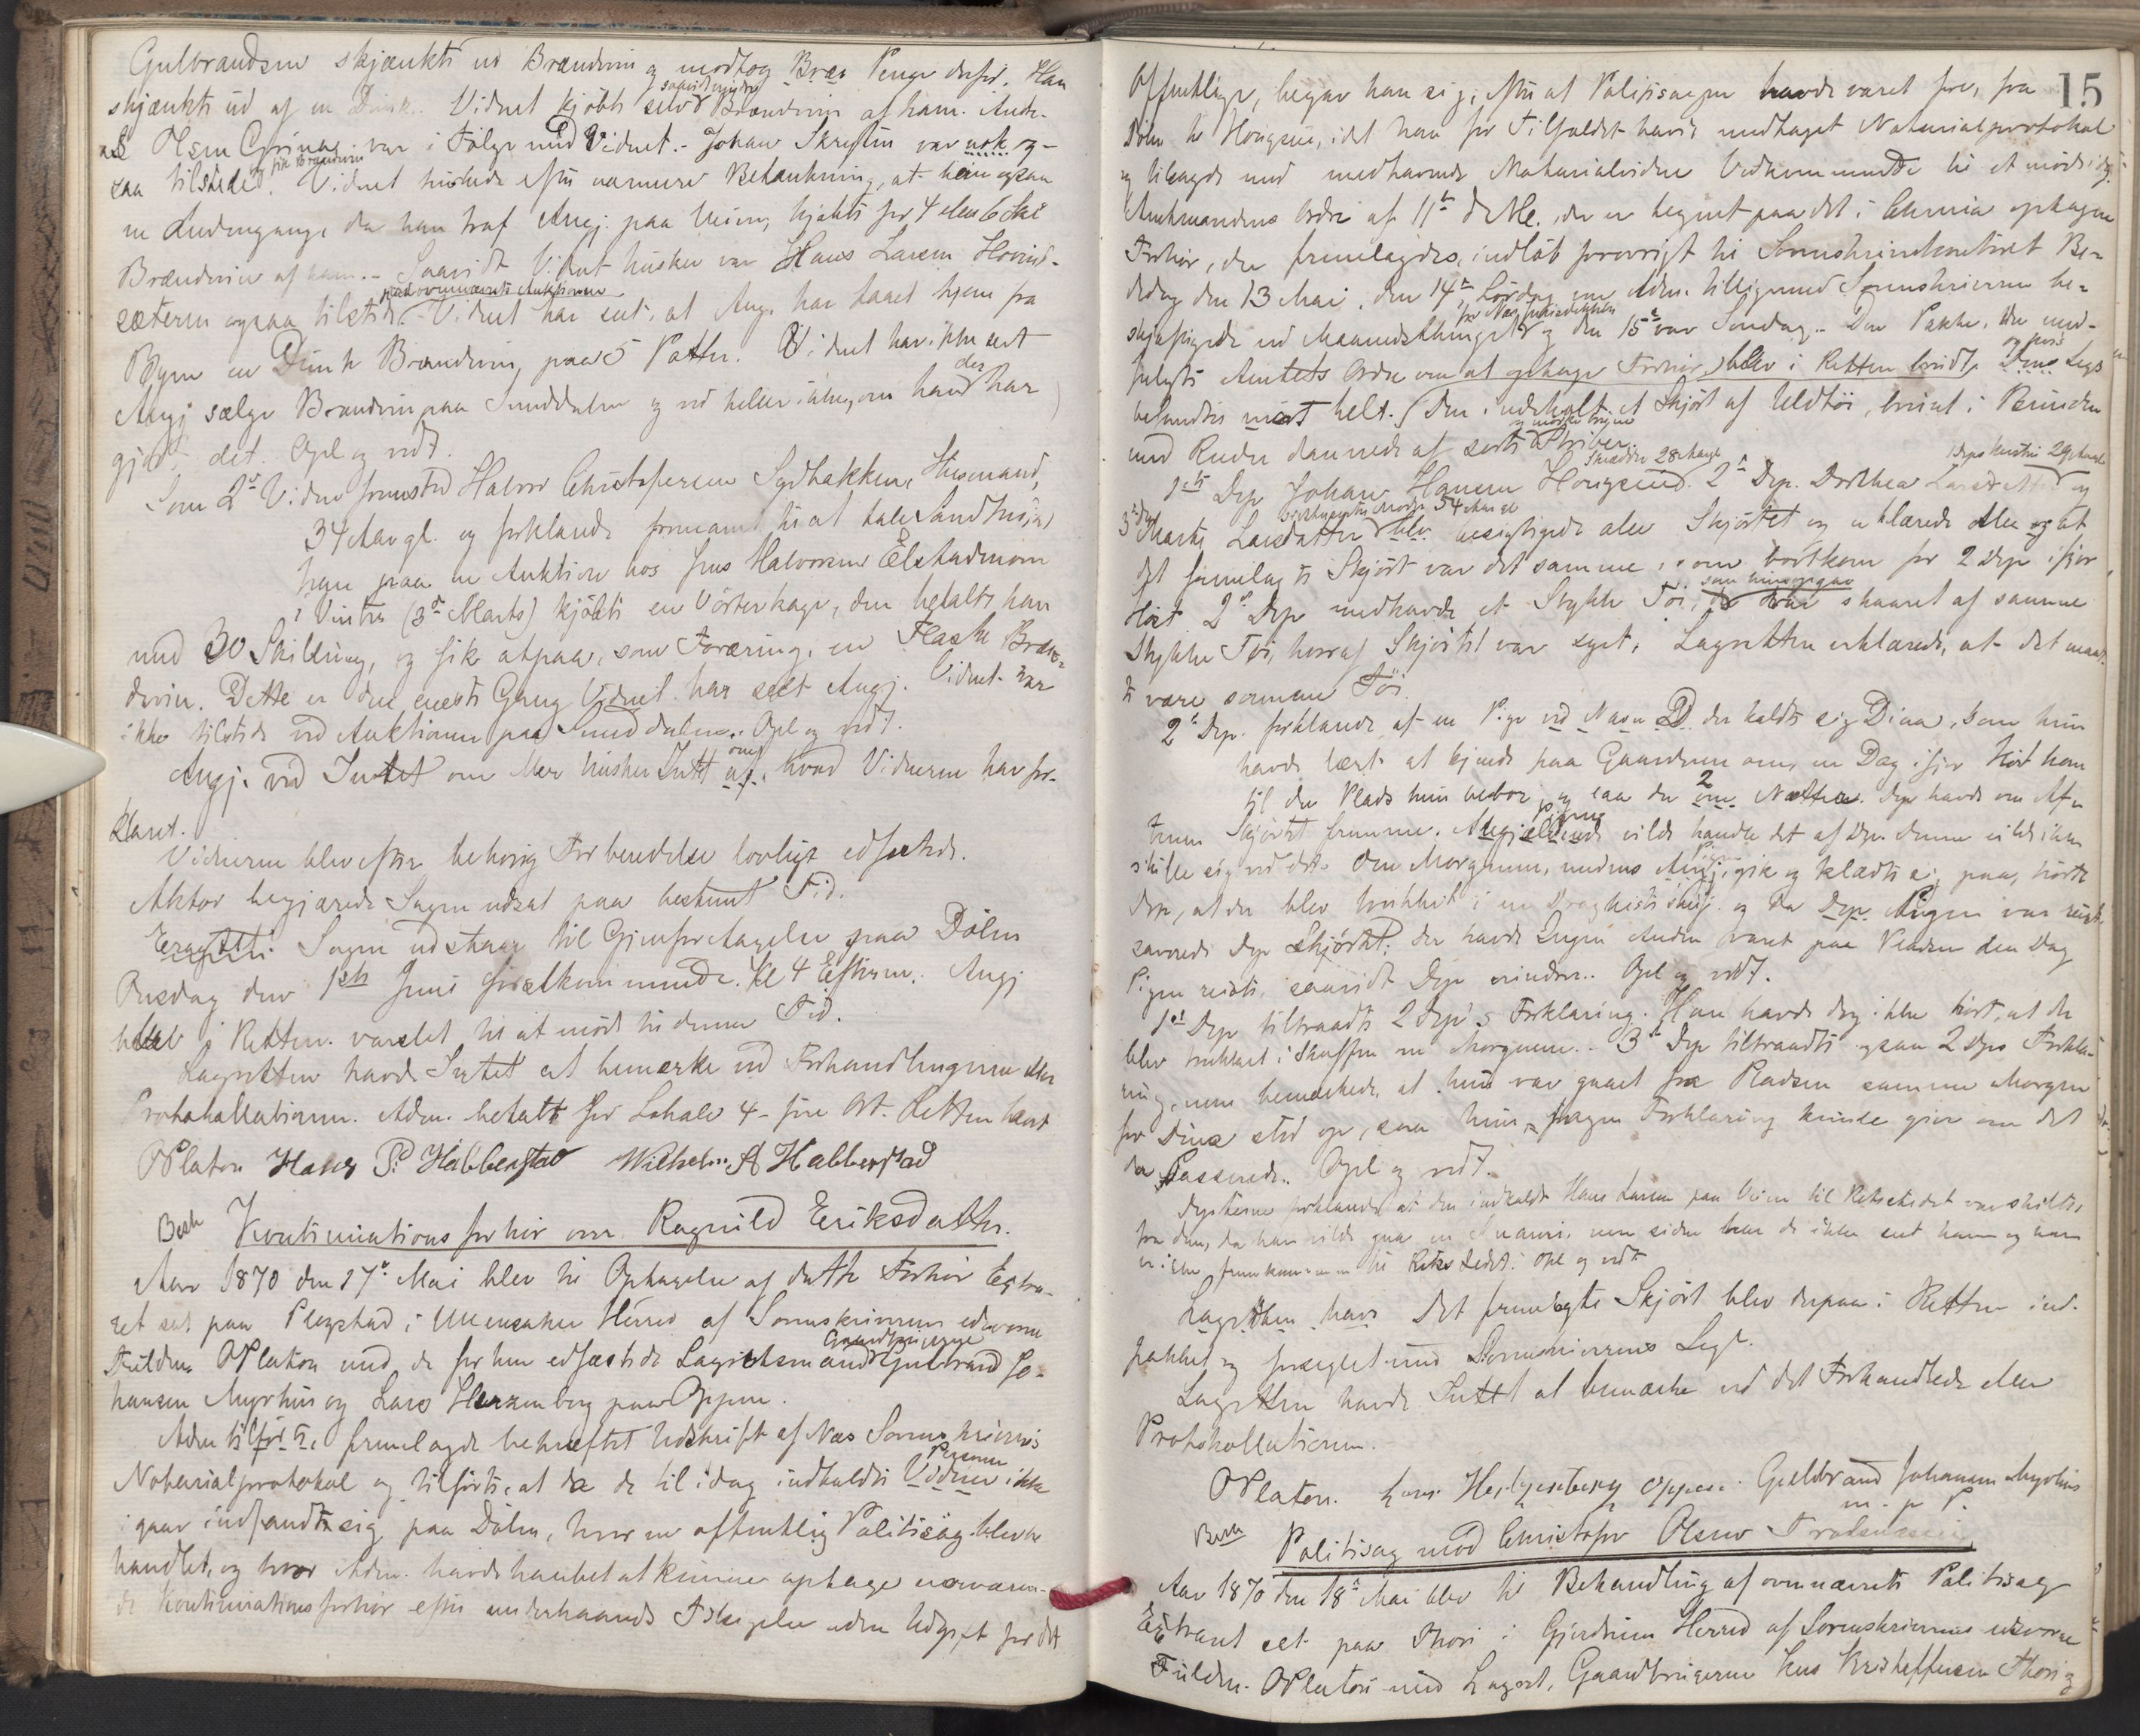 Gulbrandsen skjænkte ud Brændevin og modtog Penge derfor. Han
skjænkte ud af en Dunk. Vidnet kjøbte selv saavidt erindres Brændevin af ham. Ande-
Olsen var i Følge med Vidnet. - Johan var nok og-
saa tilstede og fik Brændevin. Vidnet huskede efter nærmere Betænkning, at han ogsaa
en Andengang, da han traf Angj. paa Veien, kjøbte for 4 eller 6 Skil
Brændevin af ham. - Saavidt Vidnet husker var Hans Larsen Hovind-
sæteren ogsaa tilstede paa ovennævnte Auktion. - Vidnet har seet, at Angj. har baaret hjem fra
Byen en Dunk Brændevin paa 5 Potter. Vidnet har ikke seet
Angj sælge Brændevin paa Sunddalen og ved heller ikke, om han der har
gjort det. Opl og vedt.
Som 2det Vidne fremstod Halvor Christofersen Sydbakken, Husmand,
34 Aar gl. og forklarede formanet til at tale Sandhed
han paa en Auktion hos Jens Halvorsen Elstadmoen
i Vinter (3die Marts) kjøbte en Vörterkage, den betalte han
med 30 Skilling, og fik atpaa, som Foræring, en Flaske Bræn-
devin. Dette er den eneste Gang Vidnet har seet Angj. Vidnet var
ikke tilstede ved Auktionen paa Sunddalen. Opl og vedt.
Angj. ved Intet om Mer husker Intet om af, hvad Vidnerne har for-
klaret.
Vidnerne blev efter behørig Forberedelse lovligt edfæstede.
Aktor begjærede Sagen udsat paa bestemt Tid.
Eragtet: Sagen udstaar til Gjenforetagelse paa Dølen
Onsdag den 1ste Juni førstkommende Kl 4 Efterm. Angj
blev i Retten varslet til at møde til denne Tid.
Lagretten havde Intet at bemærke ved Forhandlingerne eller
Protokollationen. Adm. betalte for Lokale 4 - fire Ort. Retten hævet
OPlaton Hans P. Habberstad Wilhelm A Habberstad
Besk Kontinuationsforhør over Ragnild Eriksdatter.
Aar 1870 den 17de Mai blev til Optagelse af dette Forhør Extra-
ret sat paa Kløgstad i Ullensaker Herred af Sorenskriverens edsvorne
Fuldm. OPlaton med de for hen edfæstede Lagrettesmænd Gaardbrugerne Gulbrand Jo-
hansen Myrhus og Lars Herzenberg paa Oppen.
Adm tilførte, fremlagde bekræftet Udskrift af Næs Sorenskriveris
Notarialprotokol og tilførte, at da de til idag indkaldte Vidner Personer ikke
igaar indfandt sig paa Dølen, hvor en offentlig Politisag blev be-
handlet, og hvor Adm. havde haabet at kunne optage nærværen-
de Kontinuationsforhør efter underhaands Tilsigelse uden Udgift for det
15
Offentlige, begav han sig, efter at Politisagen havde været fore, fra
Dølen til Hongsein, idet han for Tilfældet havde medtaget Notarialprotokol
og tilsagde med medhavende Notarialvidner Vedkommende til et møde idag.
Amtmandens Ordre af 11te d Md., der er tegnet paa det i optagne
Forhør, der fremlagdes, indløb forøvrigt til Sorenskriverkontoret Fre-
dag den 13 Mai. den 14de, Lørdag var Adm. tilligemed Sorenskriveren be-
skjæftiget ved Maanedsthinget for Næs Jurisdiktion og den 15de var Søndag. - Den Pakke, der med-
fulgte Amtets Ordre om at optage Forhør, blev i Retten brudt. Dens Segl
befandtes helt. (Den indeholdt et Skjørt af Uldtøi, brunt i Bunden
med Ruder dannede af sorte og mørkebrune Striber.
1ste Dep Johan Hansen Hongseind Snedker 28 Aar gl 2den Dep. Dorthea Larsdatter Deps Kusine 29 Aar gl og
3die Dep Marthe Larsdatter 54 Aar gl blev besigtigede alle Skjørtet og erklærede Alle og at
det fremlagte Skjørt var det samme, som bortkom for 2 Dep ifjor
Høst 2den Dep medhavde et Stykke Tøi, som hun opgav var skaaret af samme
Stykke Tøi, hvoraf Skjørtet var syet. Lagretten erklærede, at det maat-
te være samme Tøi.
2den Dep. forklarede at en Pige ved Navn D der kaldte sig Dina, som hun
havde lært at kjende paa Gaardene om, en Dag ifjor Høst kom
til den Plads hun bebor og laa der 2 Nætter. Dep havde om Af-
tenen Skjørtet fremme. Angjældende Pigen vilde handle det af Dep. denne vilde ikke
skille sig ved det. Om Morgenen, medens Angj. Pigen gik og klædte sig paa, hørte
Dep, at der blev trukket i en Dragkisteskuf. og da Dep. Pigen var reist
savnede Dep Skjørtet; der havde Ingen Anden været paa Pladsen den Dag
Pigen reiste, saavidt Dep erindrer. Opl og vedt.
1ste Dep tiltraadte 2 Dep's Forklaring. Han havde dog ikke hørt, at der
blev trukket i Skuffen om Morgenen. - 3die Dep tiltraadte ogsaa 2 Deps Forkla-
ring, men bemærkede, at hun var gaaet fra Pladsen samme Morgen
før Dina stod op, saa hun ingen Forklaring kunde give om det
da Passerede. Opl og vedt.
Deptserne forklarede at den indkaldte Hans Larsen paa Veien til Retsstedet var skildt
fra dem, da han vilde gaa en Snarvei, men siden har de ikke seet ham og han
er ikke fremkommen til Retsstedet. Opl og vedt
Lagretten havde Det fremlagte Skjørt blev derpaa i Retten ind-
pakket og forseglet med Sorenskriverens Segl.
Lagretten havde Intet at bemærke ved det Forhandlede eller
Protokollationen.
OPlaton. Lars Herzenberg Oppen Guldbrand Johansen Myrhus
m. p. P.
Besk Politisag mod Christofer Olsen
Aar 1870 den 18de Mai blev til Behandling af ovennævnte Politisag
Extraret sat paa i Gjerdrum Herred af Sorenskriverens edsvorne
Fuldm. OPlaton med Lagret, Gaardbrugerne Jens Kristoffersen og